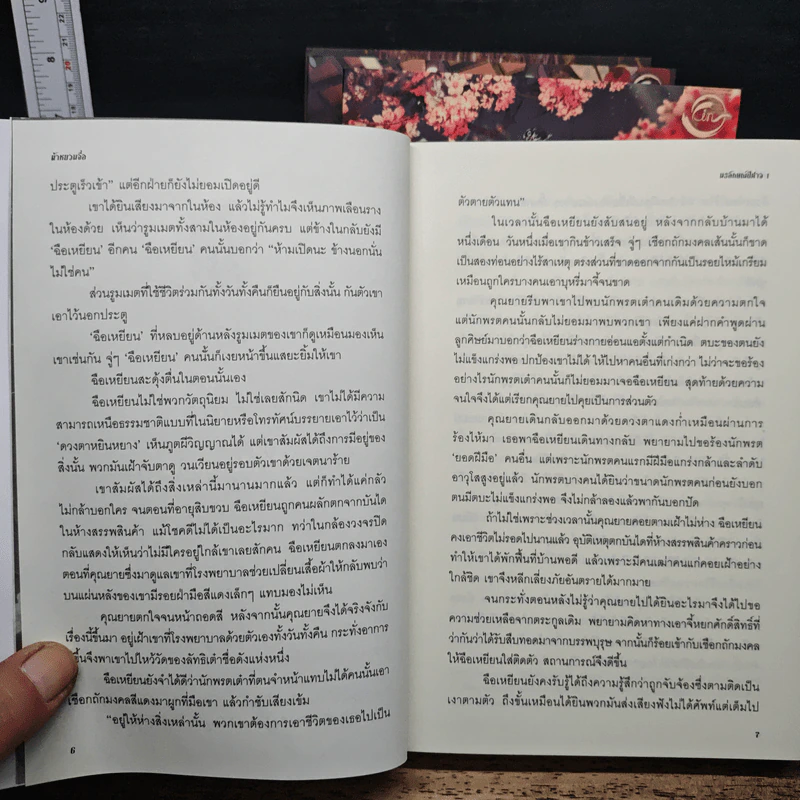 ม้าหยวนจื่อ
ประตูเร็วเข้า” แต่อีกฝ่ายก็ยังไม่ยอมเปิดอยู่ดี
เขาได้ยินเสียงมาจากในห้อง แล้วไม่รู้ทำไมจึงเห็นภาพเลือนราง
ในห้องด้วย เห็นว่ารูมเมตทั้งสามในห้องอยู่กันครบ แต่ข้างในกลับยังมี
‘ฉือเหยียน’ อีกคน ‘ฉือเหยียน’ คนนั้นบอกว่า “ห้ามเปิดนะ ข้างนอกนั่น
ไม่ใช่คน”
ส่วนรูมเมตที่ใช้ชีวิตร่วมกันทั้งวันทั้งคืนก็ยืนอยู่กับสิ่งนั้น กันตัวเขา
เอาไว้นอกประตู
‘ฉือเหยียน’ ที่หลบอยู่ด้านหลังรูมเมตของเขาก็ดูเหมือนมองเห็น
เขาเช่นกัน จู่ๆ ‘ฉือเหยียน’ คนนั้นก็เงยหน้าขึ้นแสยะยิ้มให้เขา
ฉือเหยียนสะดุ้งตื่นในตอนนั้นเอง
ฉือเหยียนไม่ใช่พวกวัตถุนิยม ไม่ใช่เลยสักนิด เขาไม่ได้มีความ
สามารถเหนือธรรมชาติแบบที่ในนิยายหรือโทรทัศน์บรรยายเอาไว้ว่าเป็น
‘ดวงตาหยินหยาง’ เห็นภูตผีวิญญาณได้ แต่เขาสัมผัสได้ถึงการมีอยู่ของ
สิ่งนั้น พวกมันเฝ้าจับตาดู วนเวียนอยู่รอบตัวเขาด้วยเจตนาร้าย
เขาสัมผัสได้ถึงสิ่งเหล่านี้มานานมากแล้ว แต่ก็ทำได้แค่กลัว
ไม่กล้าบอกใคร จนตอนที่อายุสิบขวบ ฉือเหยียนถูกคนผลักตกจากบันได
ในห้างสรรพสินค้า แม้โชคดีไม่ได้เป็นอะไรมาก ทว่าในกล้องวงจรปิด
กลับแสดงให้เห็นว่าไม่มีใครอยู่ใกล้เขาเลยสักคน ฉือเหยียนตกลงมาเอง
ตอนที่คุณยายซึ่งมาดูแลเขาที่โรงพยาบาลช่วยเปลี่ยนเสื้อผ้าให้กลับพบว่า
บนแผ่นหลังของเขามีรอยฝ่ามือสีแดงเล็กๆ แทบมองไม่เห็น
คุณยายตกใจจนหน้าถอดสี หลังจากนั้นคุณยายจึงได้จริงจังกับ
เรื่องนี้ขึ้นมา อยู่เฝ้าเขาที่โรงพยาบาลด้วยตัวเองทั้งวันทั้งคืน กระทั่งอาการ
ขึ้นจึงพาเขาไปไหว้วัดของลัทธิเต๋าชื่อดังแห่งหนึ่ง
ฉือเหยียนยังจำได้ดีว่านักพรตเต๋าที่ตนจำหน้าแทบไม่ได้คนนั้นเอา
เชือกถักมงคลสีแดงมาผูกที่มือเขา แล้วกำชับเสียงเข้ม
“อยู่ให้ห่างสิ่งเหล่านั้น พวกเขาต้องการเอาชีวิตของเธอไปเป็น
6
มรลักยณ์ปีศาจ 1
ตัวตายตัวแทน”
ในเวลานั้นฉือเหยียนยังสับสนอยู่ หลังจากกลับบ้านมาได้
หนึ่งเดือน วันหนึ่งเมื่อเขากินข้าวเสร็จ จู่ๆ เชือกถักมงคลเส้นนั้นก็ขาด
เป็นสองท่อนอย่างไร้สาเหตุ ตรงส่วนที่ขาดออกจากกันเป็นรอยไหม้เกรียม
เหมือนถูกใครบางคนเอาบุหรี่มาจี้จนขาด
คุณยายรีบพาเขาไปพบนักพรตเต๋าคนเดิมด้วยความตกใจ
แต่นักพรตคนนั้นกลับไม่ยอมมาพบพวกเขา เพียงแค่ฝากคำพูดผ่าน
ลูกศิษย์มาบอกว่าฉือเหยียนร่างกายอ่อนแอตั้งแต่กำเนิด ตบะของตนยัง
ไม่แข็งแกร่งพอ ปกป้องเขาไม่ได้ ให้ไปหาคนอื่นที่เก่งกว่า ไม่ว่าจะขอร้อง
อย่างไรนักพรตเต๋าคนนั้นก็ไม่ยอมมาเจอฉือเหยียน สุดท้ายด้วยความ
จนใจจึงได้แต่เรียกคุณยายไปคุยเป็นการส่วนตัว
คุณยายเดินกลับออกมาด้วยดวงตาแดงก่ำเหมือนผ่านการ
ร้องไห้มา เธอพาฉือเหยียนเดินทางกลับ พยายามไปขอร้องนักพรต
‘ยอดฝีมือ’ คนอื่น แต่เพราะนักพรตคนแรกมีฝีมือแกร่งกล้าและลำดับ
อาวุโสสูงอยู่แล้ว นักพรตบางคนได้ยินว่าขนาดนักพรตคนก่อนยังบอก
ตนมีตบะไม่แข็งแกร่งพอ จึงไม่กล้าลองแล้วพากันบอกปัด
ถ้าไม่ใช่เพราะช่วงเวลานั้นคุณยายคอยตามเฝ้าไม่ห่าง ฉือเหยียน
คงเอาชีวิตไม่รอดไปนานแล้ว อุบัติเหตุตกบันไดที่ห้างสรรพสินค้าคราวก่อน
ทำให้เขาได้พักฟื้นที่บ้านพอดี แล้วเพราะมีคนเฒ่าคนแก่คอยเฝ้าอย่าง
ใกล้ชิด เขาจึงหลีกเลี่ยงภัยอันตรายได้มากมาย
จนกระทั่งตอนหลังไม่รู้ว่าคุณยายไปได้ยินอะไรมาจึงได้ไปขอ
ความช่วยเหลือจากตระกูลเดิม พยายามคิดหาทางเอาจี้หยกศักดิ์สิทธิ์ที่
ว่ากันว่าได้รับสืบทอดมาจากบรรพบุรุษ จากนั้นก็ร้อยเข้ากับเชือกถักมงคล
ให้ฉือเหยียนใส่ติดตัว สถานการณ์จึงดีขึ้น
ฉือเหยียนยังคงรับรู้ได้ถึงความรู้สึกว่าถูกจับจ้องซึ่งตามติดเป็น
เงาตามตัว ถึงขั้นเหมือนได้ยินพวกมันส่งเสียงฟังไม่ได้ศัพท์แต่เต็มไป
7